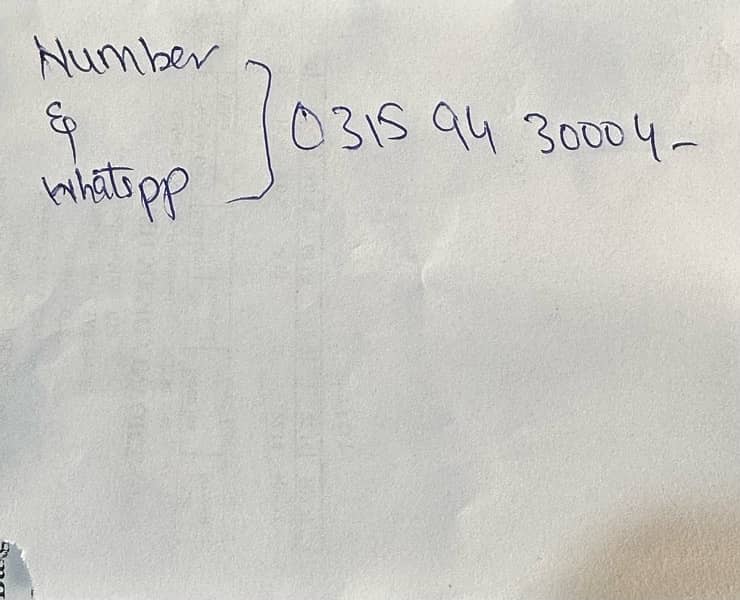 Number
&
Whatspp } 0315 94 30004-